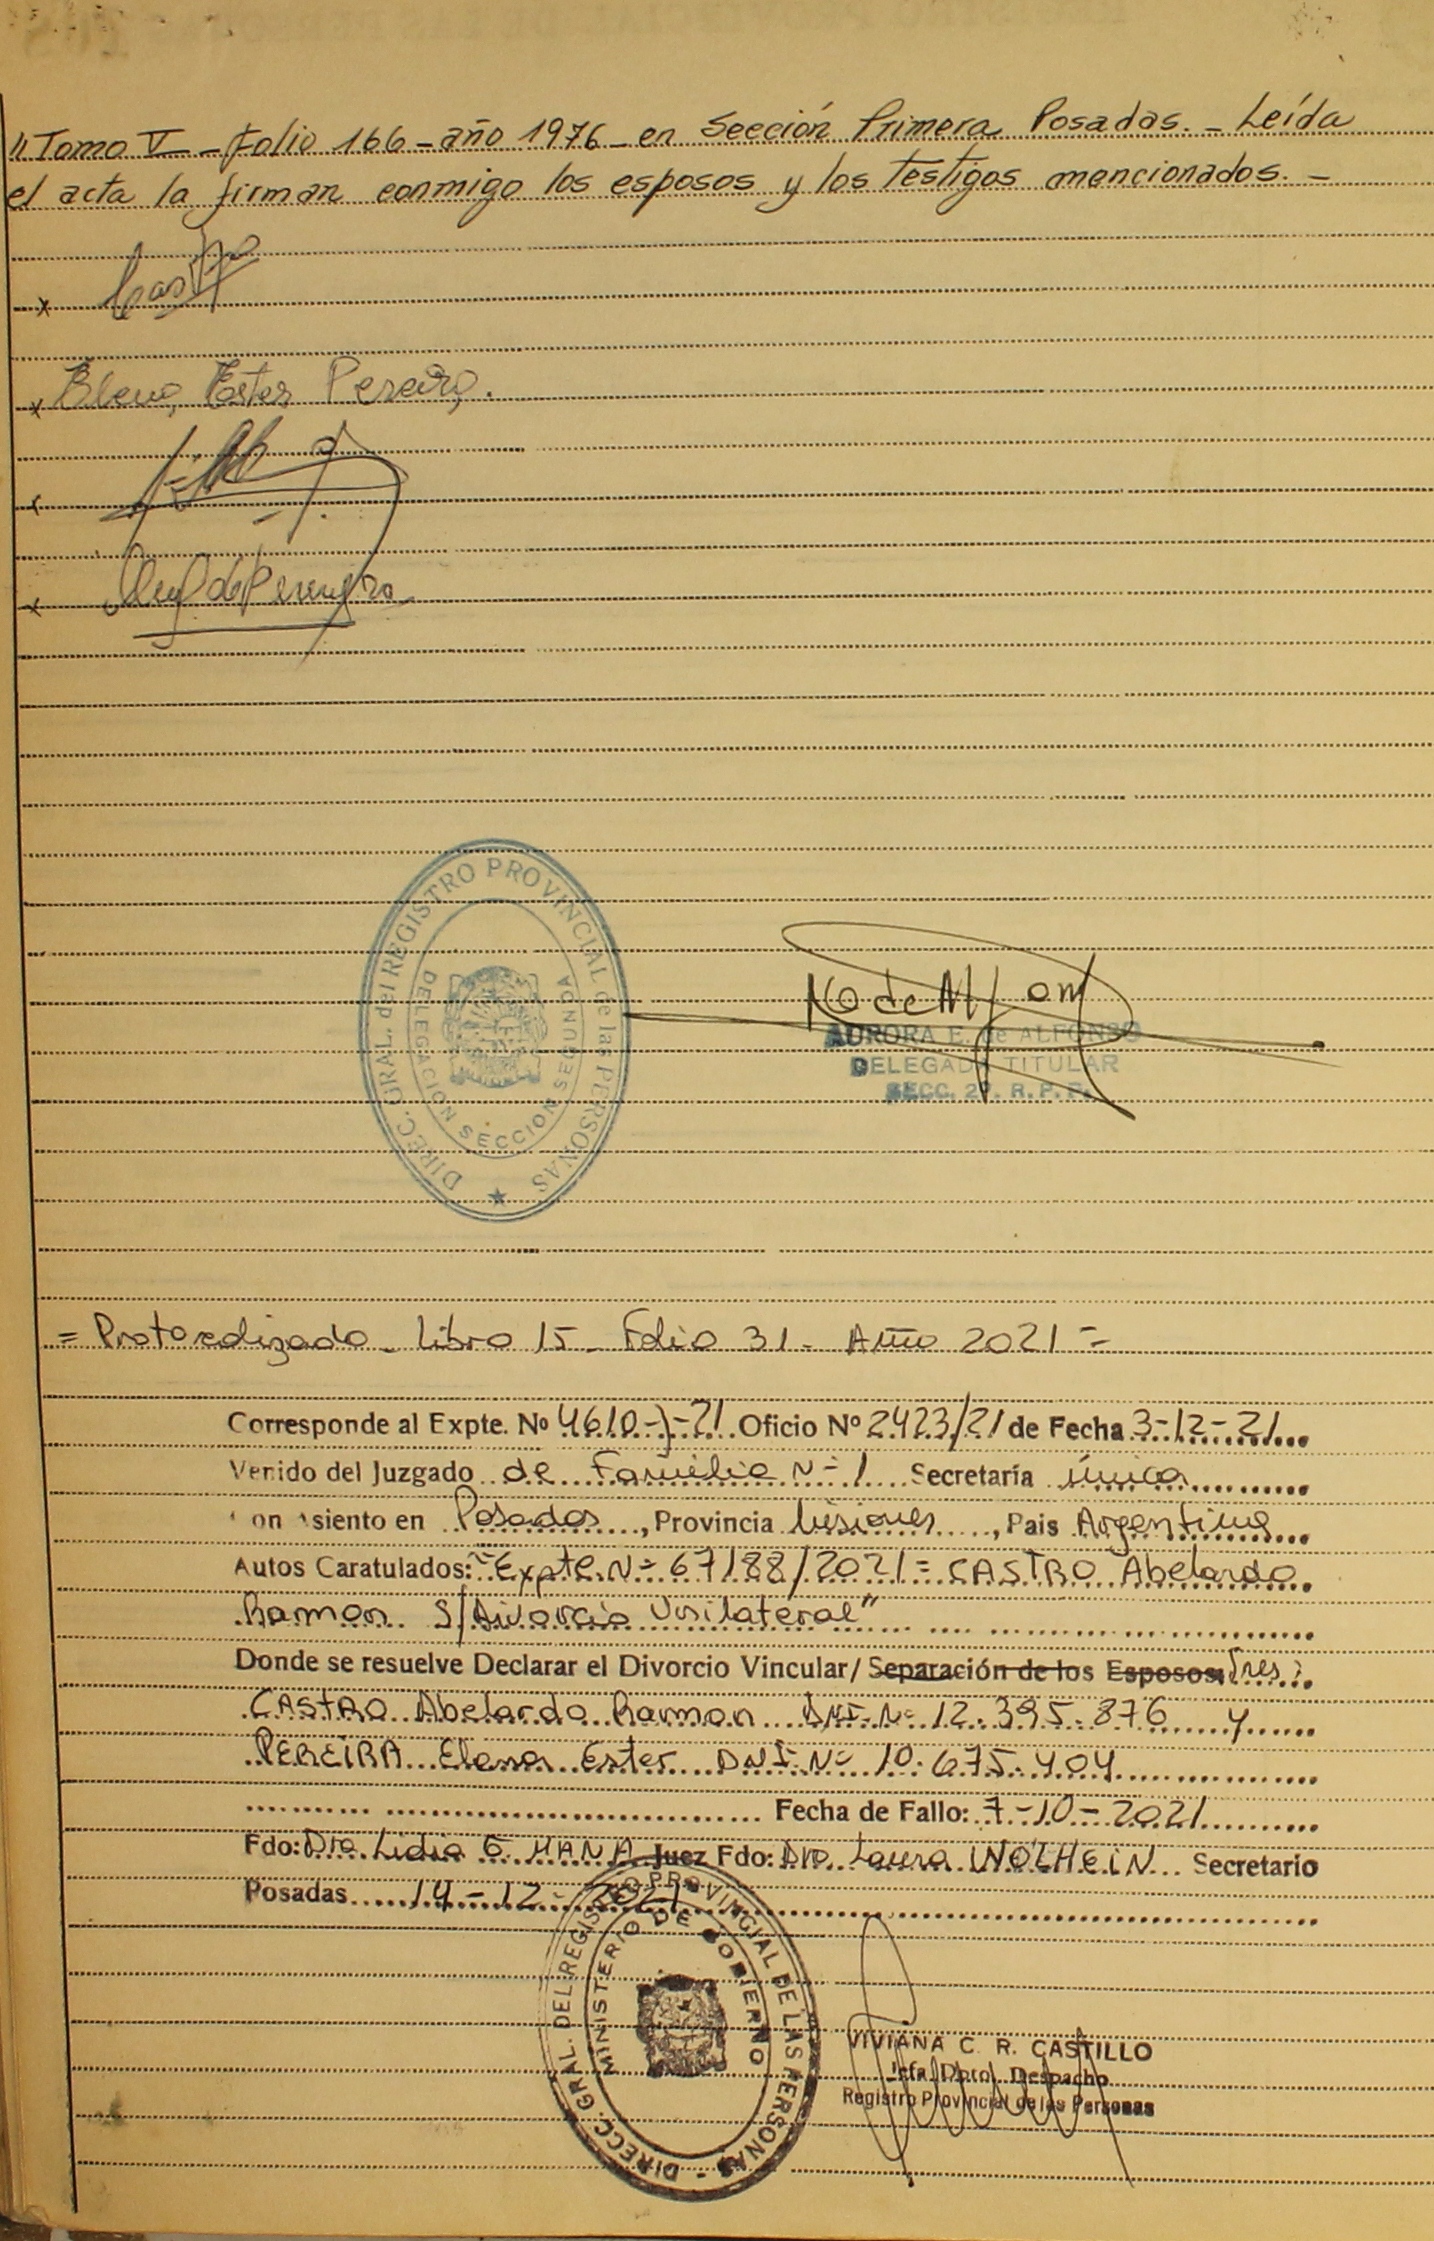 "Tomo V - folio 166 - año 1976 - en Sección Primera Posadas. - Leída
el acta la firman conmigo los esposos y los testigos mencionados. -
x Castro
x Elena Ester Pereira.
x
x de Pereyra
DIREC. GRAL. del REGISTRO PROVINCIAL de las PERSONAS
DELEGACION SECCION SEGUNDA
AURORA E. de ALFONSO
DELEGADA TITULAR
SECC. 2ª. R. P. P.
= Protocolizado - Libro 15 - Folio 31 - Año 2021 =
Corresponde al Expte. Nº 4610-J-21 Oficio Nº 2423/21 de Fecha 3-12-21
Venido del Juzgado de Familia Nº 1 Secretaría única
on siento en Posadas, Provincia Misiones, Pais Argentina
Autos Caratulados: "Expte. Nº 67188/2021 = CASTRO Abelardo
Ramon S/Divorcio Unilateral"
Donde se resuelve Declarar el Divorcio Vincular/ Separación de los Esposos: Sres:
CASTRO Abelardo Ramon DNI. Nº 12.395.876 y
PEREIRA Elena Ester DNI. Nº 10.675.404
Fecha de Fallo: 7-10-2021
Fdo: Dra Lidia E. MANA Juez Fdo: Dra Laura WOLHEIN Secretario
Posadas 14-12-2021
DIRECC. GRAL. DEL REGISTRO PROVINCIAL DE LAS PERSONAS
MINISTERIO DE GOBIERNO
VIVIANA C. R. CASTILLO
Jefa Dpto. Despacho
Registro Provincial de las Personas